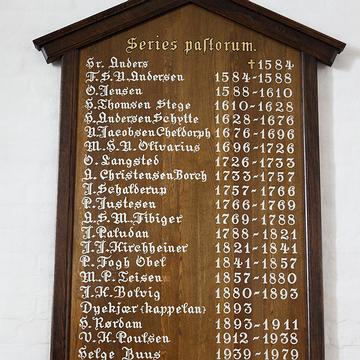 Series pastorum.
Hr. Anders †1584
F.S.V. Andersen 1584-1588
O. Jensen 1588-1610
H. Thomsen Stege 1610-1628
H. Andersen Schytte 1628-1676
V. Jacobsen Cheldorph 1676-1696
M.H.V. Olivarius 1696-1726
O. Langsted 1726-1733
A. Christensen Borch 1733-1757
J. Schalderup 1757-1766
P. Justesen 1766-1769
A.S.M. Fibiger 1769-1788
J. Paludan 1788-1821
J.J. Kirchheiner 1821-1841
P. Fogh Obel 1841-1857
M.P. Teisen 1857-1880
J.H. Bolvig 1880-1893
Dyekjær (kappelan) 1893
H. Rørdam 1893-1911
V.H. Poulsen 1912-1938
Helge Buus 1939-1979